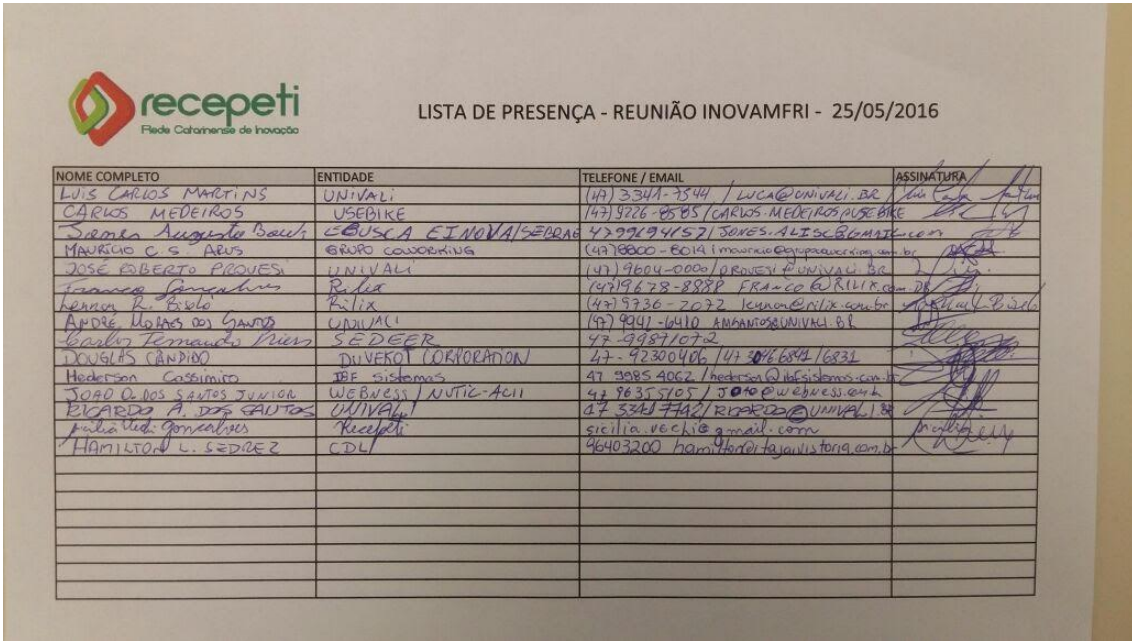 recepeti
Rede Catarinense de Inovação
LISTA DE PRESENÇA - REUNIÃO INOVAMFRI - 25/05/2016
NOME COMPLETO ENTIDADE TELEFONE / EMAIL ASSINATURA
LUIS CARLOS MARTINS UNIVALI (47) 3341-7544 / LUCA@UNIVALI.BR
CARLOS MEDEIROS USEBIKE (47) 9226-8585 / CARLOS.MEDEIROS@USEBIKE
Augusto EBUSCA EINOVA/SEBRAE 4799194157/ JONES.ALISC@GMAIL.com
MAURÍCIO C. S. GRUPO COWORKING (47)8800-8014 / mauricio@grupocoworking.com.br
JOSÉ ROBERTO PROVESI UNIVALI (47) 9604-0000 / PROVESI@UNIVALI.BR
Franco Gonçalves Rilix (47)9678-8888 FRANCO@RILIX.com.BR
Lennon R. Bisolo Rilix (47) 9736-2072 lennon@rilix.com.br
ANDRE MORAES DOS SANTOS UNIVALI (47) 9941-6410 AMSANTOS@UNIVALI.BR
Carlos Fernando SEDEER 47-99871072
DOUGLAS CÂNDIDO DUVEKOT CORPORATION 47-92300406 /47 30466841 /6831
Hederson Cassimiro IBF Sistemas 47 9985 4062 / hederson@ibfsistemas.com.br
JOAO O. DOS SANTOS JUNIOR WEBNESS / NUTIC-ACII 47 96355105 / JOAO@webness.com
RICARDO A. DOS SANTOS UNIVALI 47 3341 7742/ RICARDO@UNIVALI.BR
Gonçalves Recepeti sicilia.vechi@gmail.com
HAMILTON L. SEDREZ CDL 96403200 hamilton@itajaivistoria.com.br